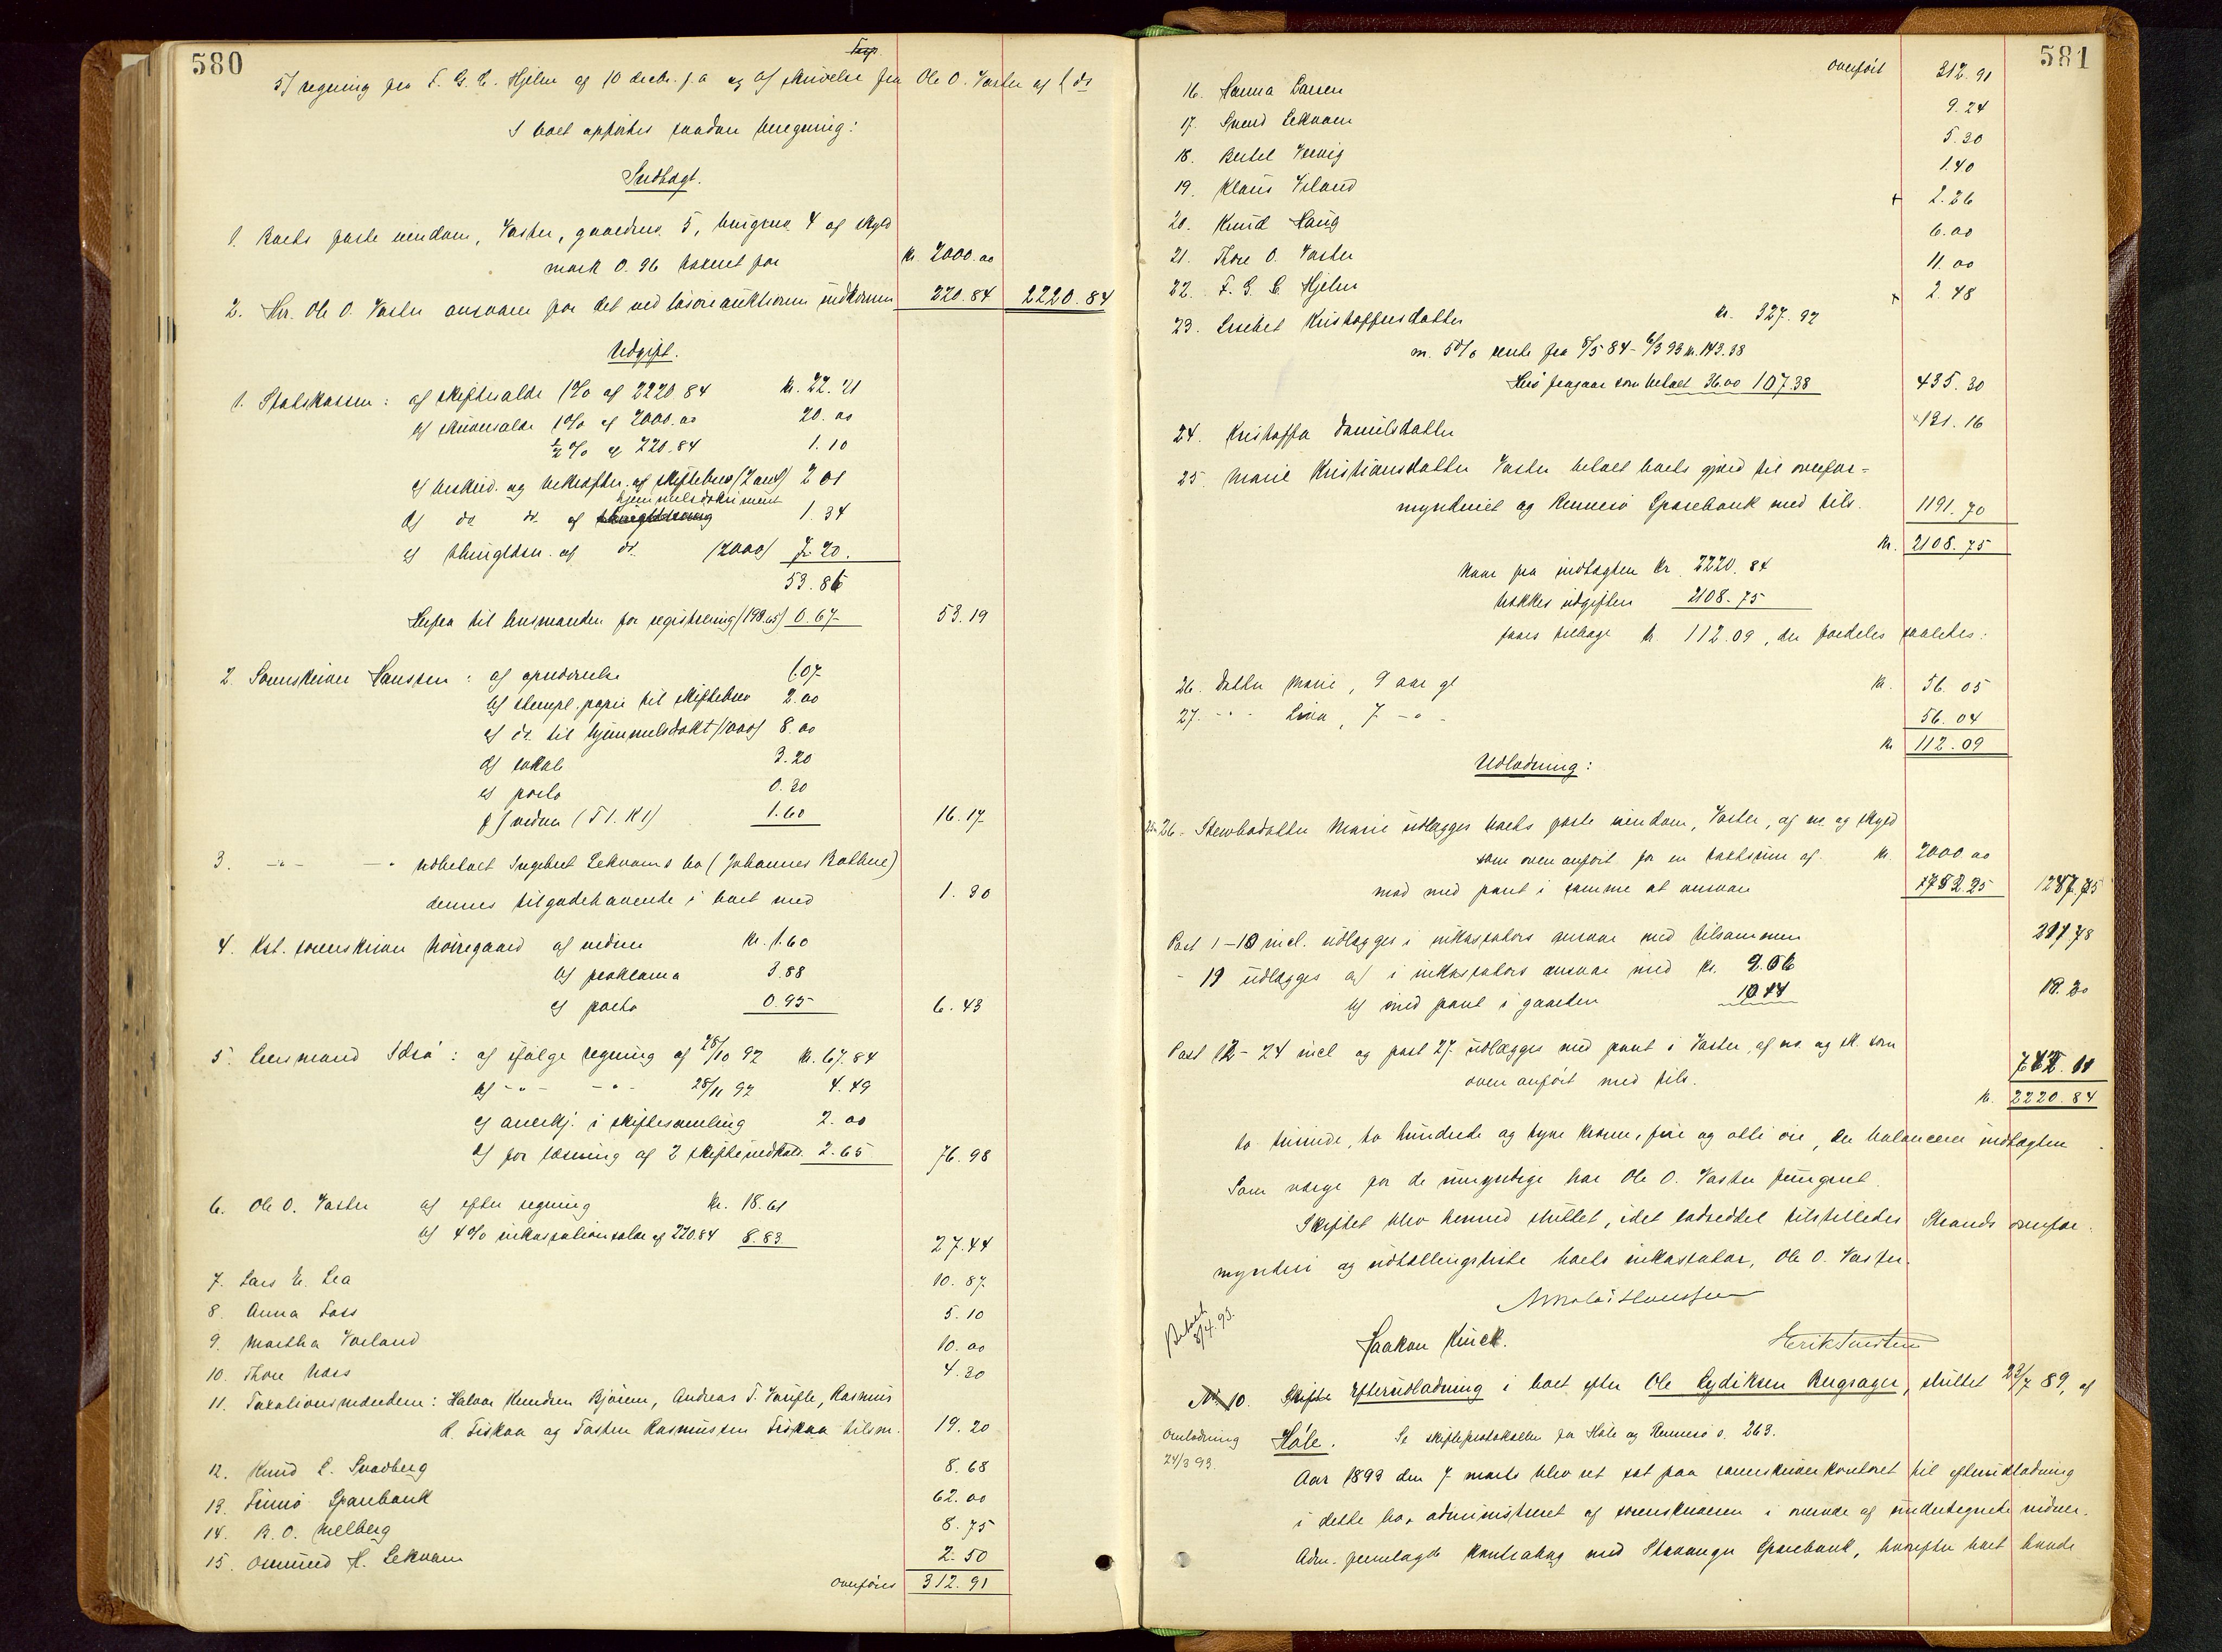 580
5) regning fra F. G. C. Hjelm af 10 decbr. f. a og 6) skrivelse fra Ole O. Vaster af 1 ds
I boet opførtes saadan beregning:
Indtægt.
1. Boets faste eiendom, Vaster, gaardsno. 5, brugsno. 4 af skyld
mark 0.96 takseret for kr. 2000.00
2. Hr. Ole O. Vaster ansvarer for det ved løsøreauktionen indkomne 220.84 2220.84
Udgift.
1. Statskassen: a) skiftesalær 1% af 2220.84 kr. 22.21
b) skriversalær 1% af 2000.00 20.00
½ % af 220.84 1.10
c) beskriv. og bekræftn. af skiftebrev (2 ark) 2 01
d) do. do. af hjemmelsdokument 1.34
e) thinglæsn. af do. (2000) 7.20.
53.86
Herfra til lensmanden for registrering (198.65) 0.67 53.19
2. Sorenskriver Hanssen: a) forudværelse 1.07
b) stempl. papir til skiftebrev 2.00
c) do. til hjemmelsdokt (2000) 8.00
d) lokale 3.20
e) porto 0.30
f) vidner (T 1. K 1) 1.60 16.17
3. -"- -"- udbetalt Ingebret Lekvams bo (Johannes Bakkne)
dennes tilgodehavende i boet med 1.30
4. Kst. sorenskriver Nørregaard a) vidner kr. 1.60
b) proklama 3.88
c) porto 0.95 6.43
5. Lensmand Idsø: a) ifølge regning af 28/10 92 kr. 67.84
b) -"- -"- 28/11 92 4.49
c) anerkj. i skiftesamling 2.00
d) for læsning af 2 skifteindkald. 2.65 76.98
6. Ole O. Vaster a) efter regning kr. 18.61
b) 4% inkassationsalær af 220.84 8.83 27.44
7. Lars E. Lea 10.87
8. Anna Foss 5.10
9. Martha Vorland 10.00
10. Thore Næss 4.30
11. Taxationsmændene: Halvor Knudsen Bjørnn, Andreas T. Vaufle, Rasmus
R. Fiskaa og Tosten Rasmussen Fiskaa tilsm. 19.20
12. Knud L. Svadberg 8.68
13. Finnø Sparebank 62.00
14. B. O. Melberg 8.75
15. Osmund H. Lekvam 2.50
overføres 312.91
581
overført 312.91
16. Hanna Larsen 9.24
17. Svend Lekvam 5.30
18. Bertel Vervig 1.40
19. Klaus Veland + 2.26
20. Knud Haug 6.00
21. Thore O. Vaster 11.00
22. F. G. C. Hjelm + 2.48
23. Lisebet Kristoffersdatter kr. 327.92
m. 5% rente fra 5/5 84 - 6/3 93 kr. 143.38
Herfra fragaar som betalt 36.00 107.38 435.30
24. Kristoffa Danielsdatter 131.16
25. Marie Kristiansdatter Vaster betalt boets gjæld til overfor-
mynderiet og Rennesø Sparebank med tils. 1191.70
kr. 2108.75
Naar fra indtægten kr. 2220.84
trækkes udgiften 2108.75
faaes tilbage kr. 112.09, der fordeles saaledes:
26. Datter Marie, 9 aar gl kr. 56.05
27. -"- Lina, 7 -"- 56.04
kr. 112.09
Udlodning:
25, 26. Stervbodatter Marie udlægges boets faste eiendom, Vaster, af no. og skyld
som oven anført for en takstsum af kr. 2000.00
mod med pant i samme at ansvare 752.25 1247.75
Post 1-10 incl. udlægges i inkassators ansvar med tilsammen 211.78
- 11 udlægges a) i inkassators ansvar med kr. 9.06
b) med pant i gaarden 10.14 19.20
Post 12-24 incl og post 27 udlægges med pant i Vaster, af no. og sk. som
oven anført med tils. 742.11
kr. 2220.84
to tusinde, to hundrede og tyve kroner, fire og otti øre, der balancerer indtægten.
Som værge for de umyndige har Ole O. Vaster fungeret.
Skiftet blev hermed sluttet, idet lodseddel tilstilledes Strands overfor-
mynderi og udtællingsliste boets inkassator, Ole O. Vaster.
Nikolai Hanssen
Betalt 8/4. 93.
Haakon Kinck. Erik Knutsen
No. 10. Efterudlodning i boet efter Ole Lydiksen Bergsager, sluttet 23/7 89, af
Omlodning 24/3 93.
Høle. Se skifteprotokollen for Høle og Rennesø s. 263.
Aar 1893 den 7 marts blev ret sat paa sorenskriverkontoret til efterudlodning
i dette bo, administreret af sorenskriveren i overvær af undertegnede vidner.
Adm. fremlagde kontrabog med Stavanger Sparebank, hvorefter boet havde